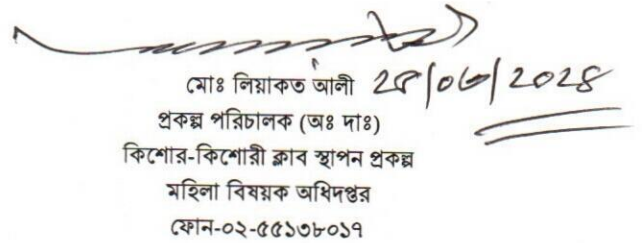 মোঃ লিয়াকত আলী ২৫/০৬/২০২৪
প্রকল্প পরিচালক (অঃ দাঃ)
কিশোর-কিশোরী ক্লাব স্থাপন প্রকল্প
মহিলা বিষয়ক অধিদপ্তর
ফোন-০২-৫৫১৩৮০১৭